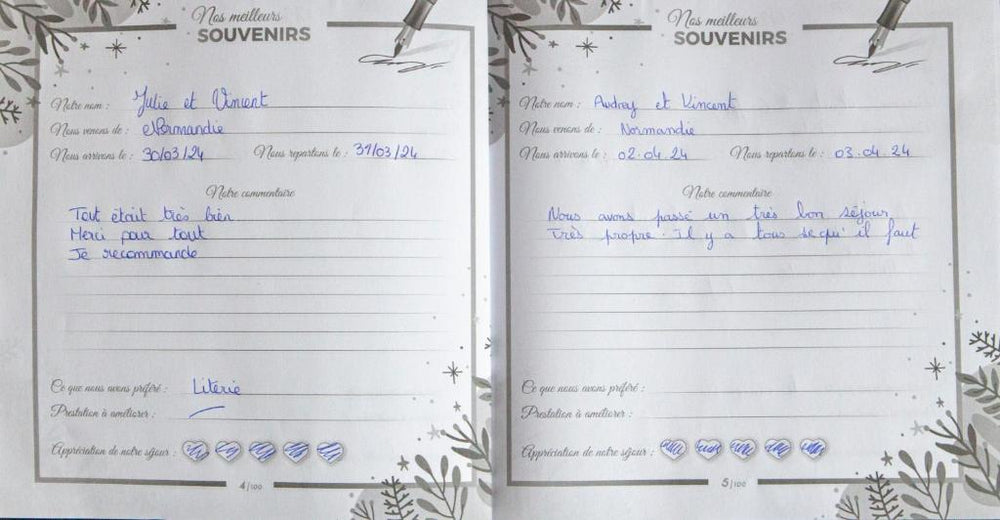 Nos meilleurs
SOUVENIRS
Notre nom : Julie et Vincent
Nous venons de : Normandie
Nous arrivons le : 30/03/24 Nous repartons le : 31/03/24
Notre commentaire
Tout était très bien
Merci pour tout
Je recommande
Ce que nous avons préféré : Literie
Prestation à améliorer :
Appréciation de notre séjour :
4/100
Nos meilleurs
SOUVENIRS
Notre nom : Audrey et Vincent
Nous venons de : Normandie
Nous arrivons le : 02.04.24 Nous repartons le : 03.04.24
Notre commentaire
Nous avons passé un très bon séjour
Très propre. Il y a tous ce qu'il faut
Ce que nous avons préféré :
Prestation à améliorer :
Appréciation de notre séjour :
5/100